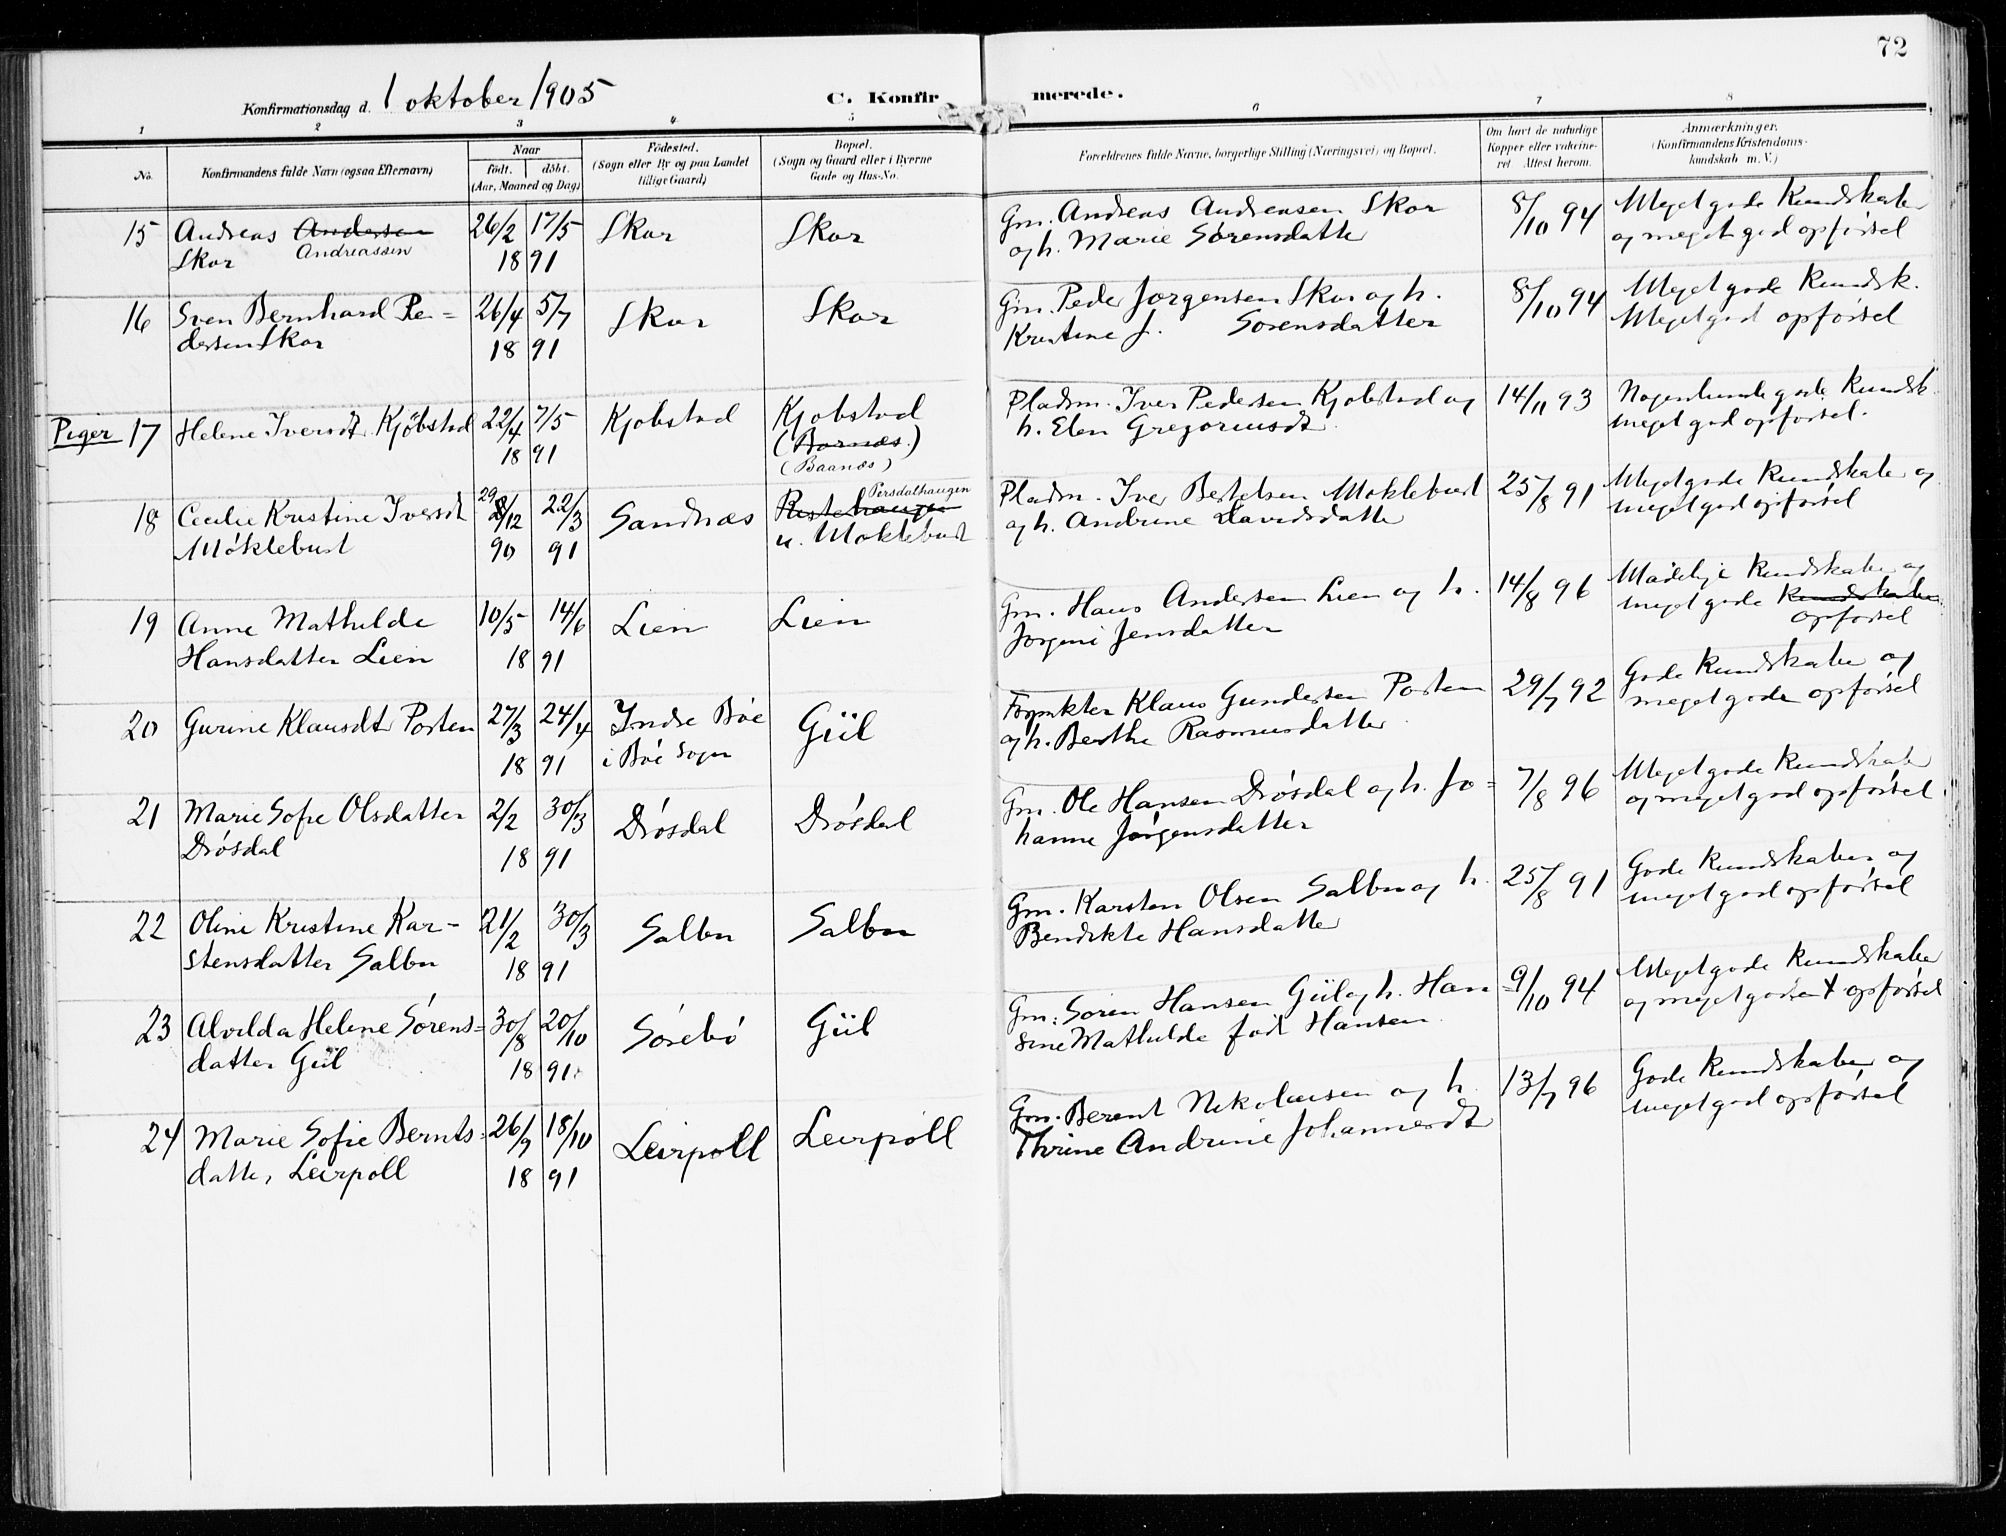 72
Konfirmationsdag d. 1 oktober 1905 C. Konfirmerede.
1 2 3 4 5 6 7 8
No. Konfirmandens fulde Navn (ogsaa Efternavn) Naar födt. döbt. (Aar, Maaned og Dag) Födested. (Sogn eller By og paa Landet tillige Gaard) Bopæl. (Sogn og Gaard eller i Byerne Gade og Hus-No. Forældrenes fulde Navne, borgerlige Stilling (Næringsvei) og Bopæl. Om havt de naturlige Kopper eller vaccineret. Attest herom. Anmærkninger. (Konfirmandens Kristendomskundskab m. V.)
15 Andreas Andersen 26/2 17/5 Skor Skor Gm. Andreas Andreasen Skor 8/10 94 Meget gode Kundskaber
Skor Andreassen 18 91 og h. Marie Sørensdatter og meget god opførsel
16 Sven Bernhard Pe- 26/4 5/7 Skor Skor Gm. Peder Jørgensen Skor og h. 8/10 94 Meget gode kundsk.
dersen Skor 18 91 Kristine f. Sørensdatter Meget god opførsel
Piger 17 Helene Iversdt Kjöbstad 22/4 7/5 Kjobstad Kjobstad Pladsm. Iver Pedersen Kjobstad og 14/11 93 Nogenlunde gode kundsk.
18 91 (Bornæs.) h. Elen Gregoriusdt. meget god opførsel.
(Baanæs)
18 Cecilie Kristine Iversdt 29/12 22/3 Sandnæs Persdalhaugen Pladsm. Iver Bertelsen Moklebust 25/8 91 Meget gode kundskaber og
Møklebust 90 91 u. Moklebust og h. Andrine Davidsdatter meget god opførsel
19 Anne Mathilde 10/5 14/6 Lien Lien Gm. Hans Andersen Lien og h. 14/8 96 Maadelige kundskaber og
Hansdatter Lien 18 91 Jørgine Jensdatter meget gode kundskaber
opførsel
20 Gurine Klausdt Porten 27/3 24/4 Indre Bøe Gül Klaus Gundersen Porten 29/7 92 Gode kundskaber og
18 91 i Bøe Sogn og h. Berthe Rasmusdatter meget gode opførsel
21 Marie Sofie Olsdatter 2/2 30/3 Drøsdal Drøsdal Gm. Ole Hansen Drøsdal og h. Jo- 7/8 96 Meget gode kundskaber
Drøsdal 18 91 hanne Jørgensdatter og meget god opførsel
22 Oline Kristine Kar- 21/2 30/3 Salbu Salbu Gm. Karsten Olsen Salbu og h. 25/8 91 Gode kundskaber og
stensdatter Salbu 18 91 Bendikte Hansdatter meget god opførsel
23 Alvilda Helene Sørens- 30/8 20/10 Sørebø Gül Gm. Søren Hansen Gül og h. Han- 9/10 94 Meget gode kundskaber
datter Gül 18 91. sine Mathilde født Hansen og meget god opførsel
24 Marie Sofie Bernts- 26/9 18/10 Leirpoll Leirpoll Gm. Berent Nikolaisen og h. 13/7 96 Gode kundskaber og
datter Leirpoll 18 91 Thrine Andrine Johannesdt meget god opførsel